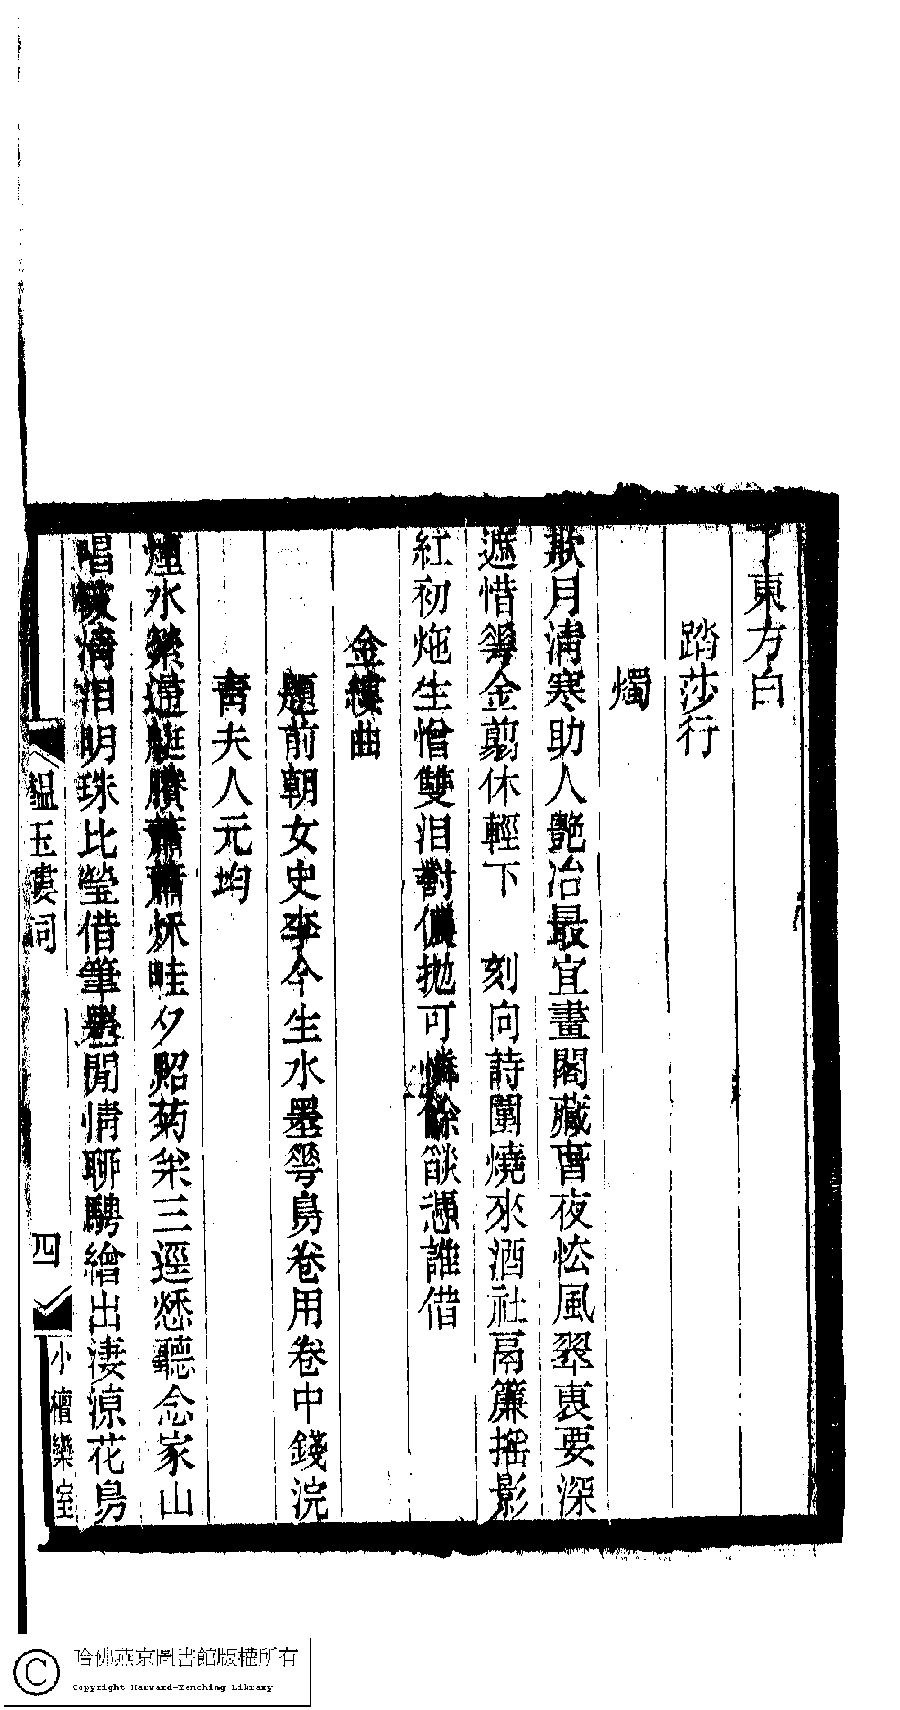 了東方白
踏莎行
燭
欺月淸寒助人艷冶最宜畫閣藏春夜怯風翠裏要深
遮惜釵金翦休輕下　刻向詩闌燒來酒社鬲簾搖影
紅初灺生憎雙泪對儂拋可憐餘燄憑誰借
金縷曲
題前朝女史李今生水墨芎舄卷用卷中錢浣
靑夫人元均
煙水縈 艇賸蕭蕭 畦夕照菊 三逕愁聽念家山
唱破淸泪明珠比瑩借筆墨閒情聊騁繪出淒涼花舄
韞玉樓詞
四
小檀欒室
哈佛燕京圖書館版權所有
Copyright Harvard-Yenching Library